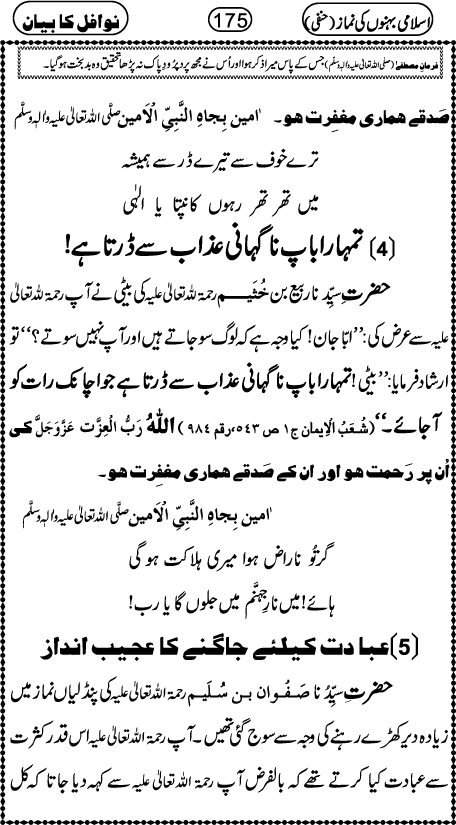 اسلامی بہنوں کی نماز (حنفی) 175 نوافل کا بیان
فرمانِ مصطفٰے (صلی اللہ تعالیٰ علیہ واٰلہٖ وسلّم) جس کے پاس میرا ذکر ہوا اور اُس نے مجھ پر دُرُودِ پاک نہ پڑھا تحقیق وہ بد بخت ہو گیا۔
صَدقے ہماری مغفِرت ہو۔ اٰمین بِجاہِ النَّبِیِّ الْاَمین صلَّی اللہ تعالیٰ علیہ واٰلہٖ وسلَّم
ترے خوف سے تیرے ڈر سے ہمیشہ
میں تھر تھر رہوں کانپتا یا الٰہی
(4) تمہارا باپ ناگہانی عذاب سے ڈرتا ہے!
حضرتِ سیِّدُنا ربیع بن خُثَیم رحمۃ اللہ تعالیٰ علیہ کی بیٹی نے آپ رحمۃ اللہ تعالیٰ
علیہ سے عرض کی: ”ابّا جان! کیا وجہ ہے کہ لوگ سو جاتے ہیں اور آپ نہیں سوتے؟“ تو
ارشاد فرمایا: ”بیٹی! تمہارا باپ ناگہانی عذاب سے ڈرتا ہے جو اچانک رات کو
آجائے۔“ (شُعَبُ الْاِیمان ج۱ ص ۵۴۳، رقم ۹۸۴) اللہُ رَبُّ الْعِزَّت عَزَّوَجَلَّ کی
اُن پر رَحمت ہو اور ان کے صَدقے ہماری مغفِرت ہو۔
اٰمین بِجاہِ النَّبِیِّ الْاَمین صلَّی اللہ تعالیٰ علیہ واٰلہٖ وسلَّم
گر تُو ناراض ہوا میری ہلاکت ہو گی
ہائے! میں نارِ جہنَّم میں جلوں گا یا رب!
(5) عبادت کیلئے جاگنے کا عجیب انداز
حضرتِ سیِّدُنا صَفْوان بن سُلَیم رحمۃ اللہ تعالیٰ علیہ کی پنڈلیاں نماز میں
زیادہ دیر کھڑے رہنے کی وجہ سے سوج گئی تھیں۔ آپ رحمۃ اللہ تعالیٰ علیہ اس قدر کثرت
سے عبادت کیا کرتے تھے کہ بالفرض آپ رحمۃ اللہ تعالیٰ علیہ سے کہہ دیا جاتا کہ کل